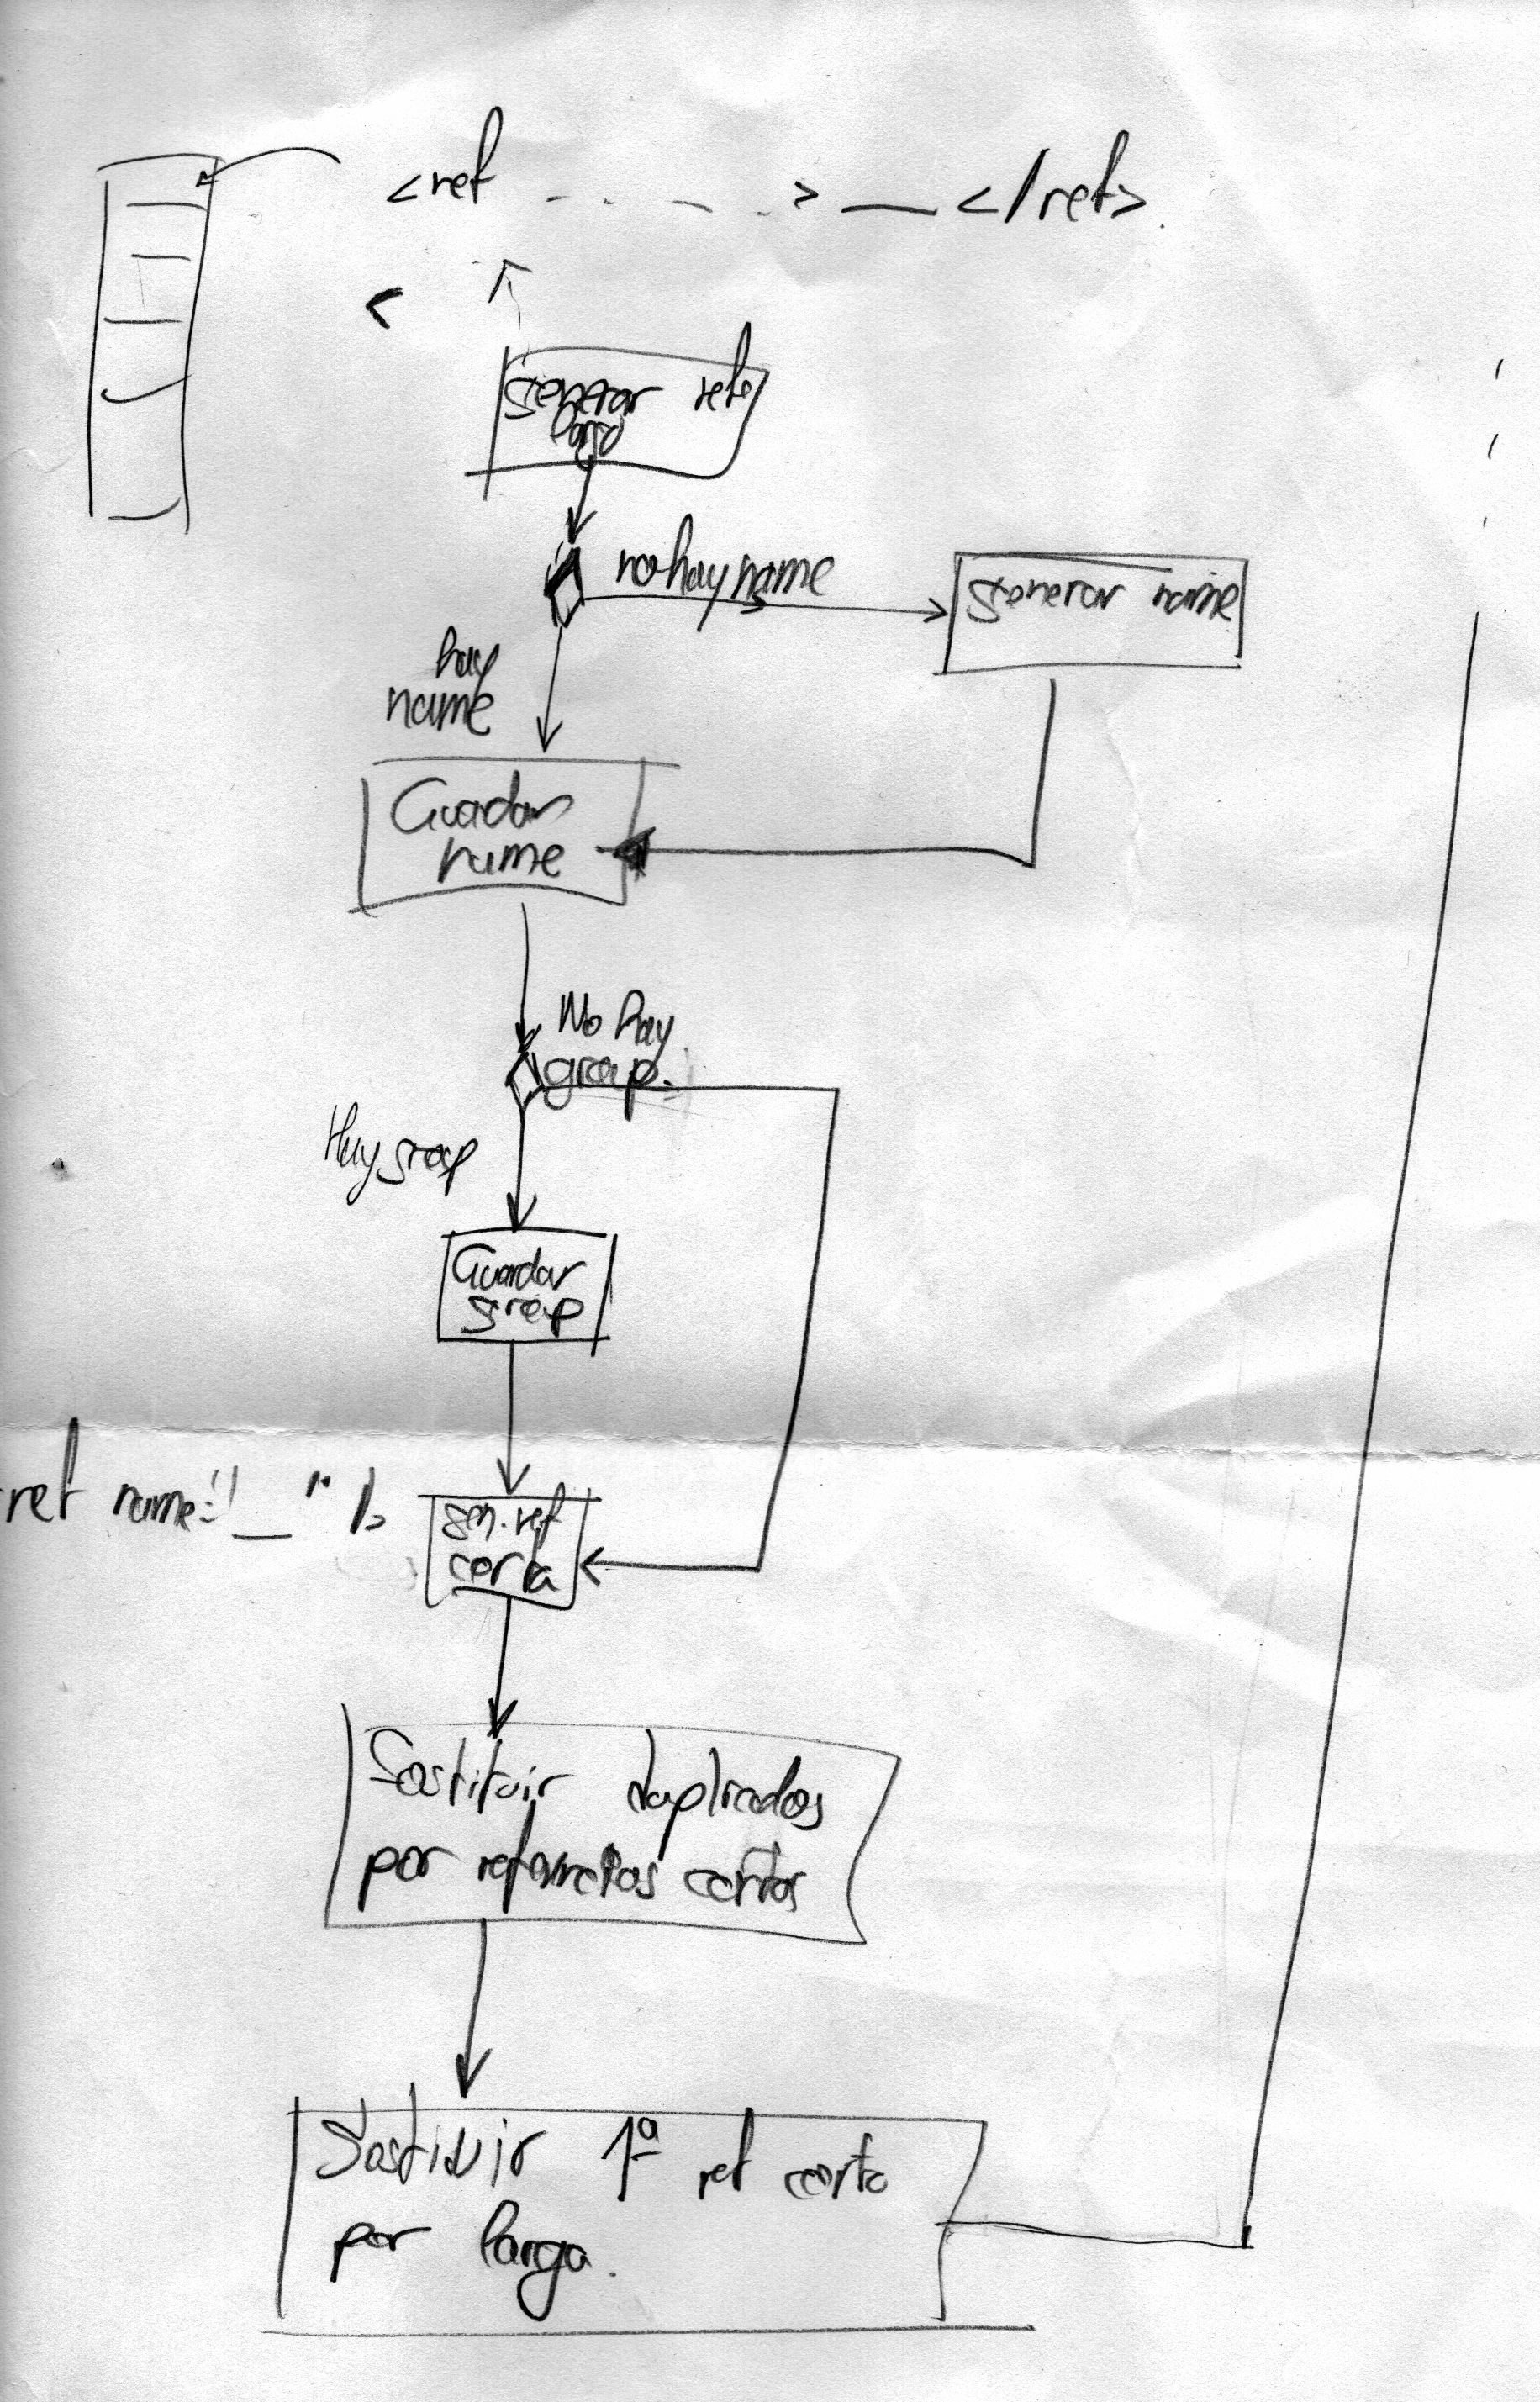 <ref - . - - . > — </ref>
<
Generar ref
larga
no hay name
Generar name
hay
name
Guardar
name
No hay
group.
Hay group
Guardar
group
ref name="_" />
Gen. ref
corta
Sostituir duplicados
por referencias cortas
Sostituir 1ª ref corta
por larga.